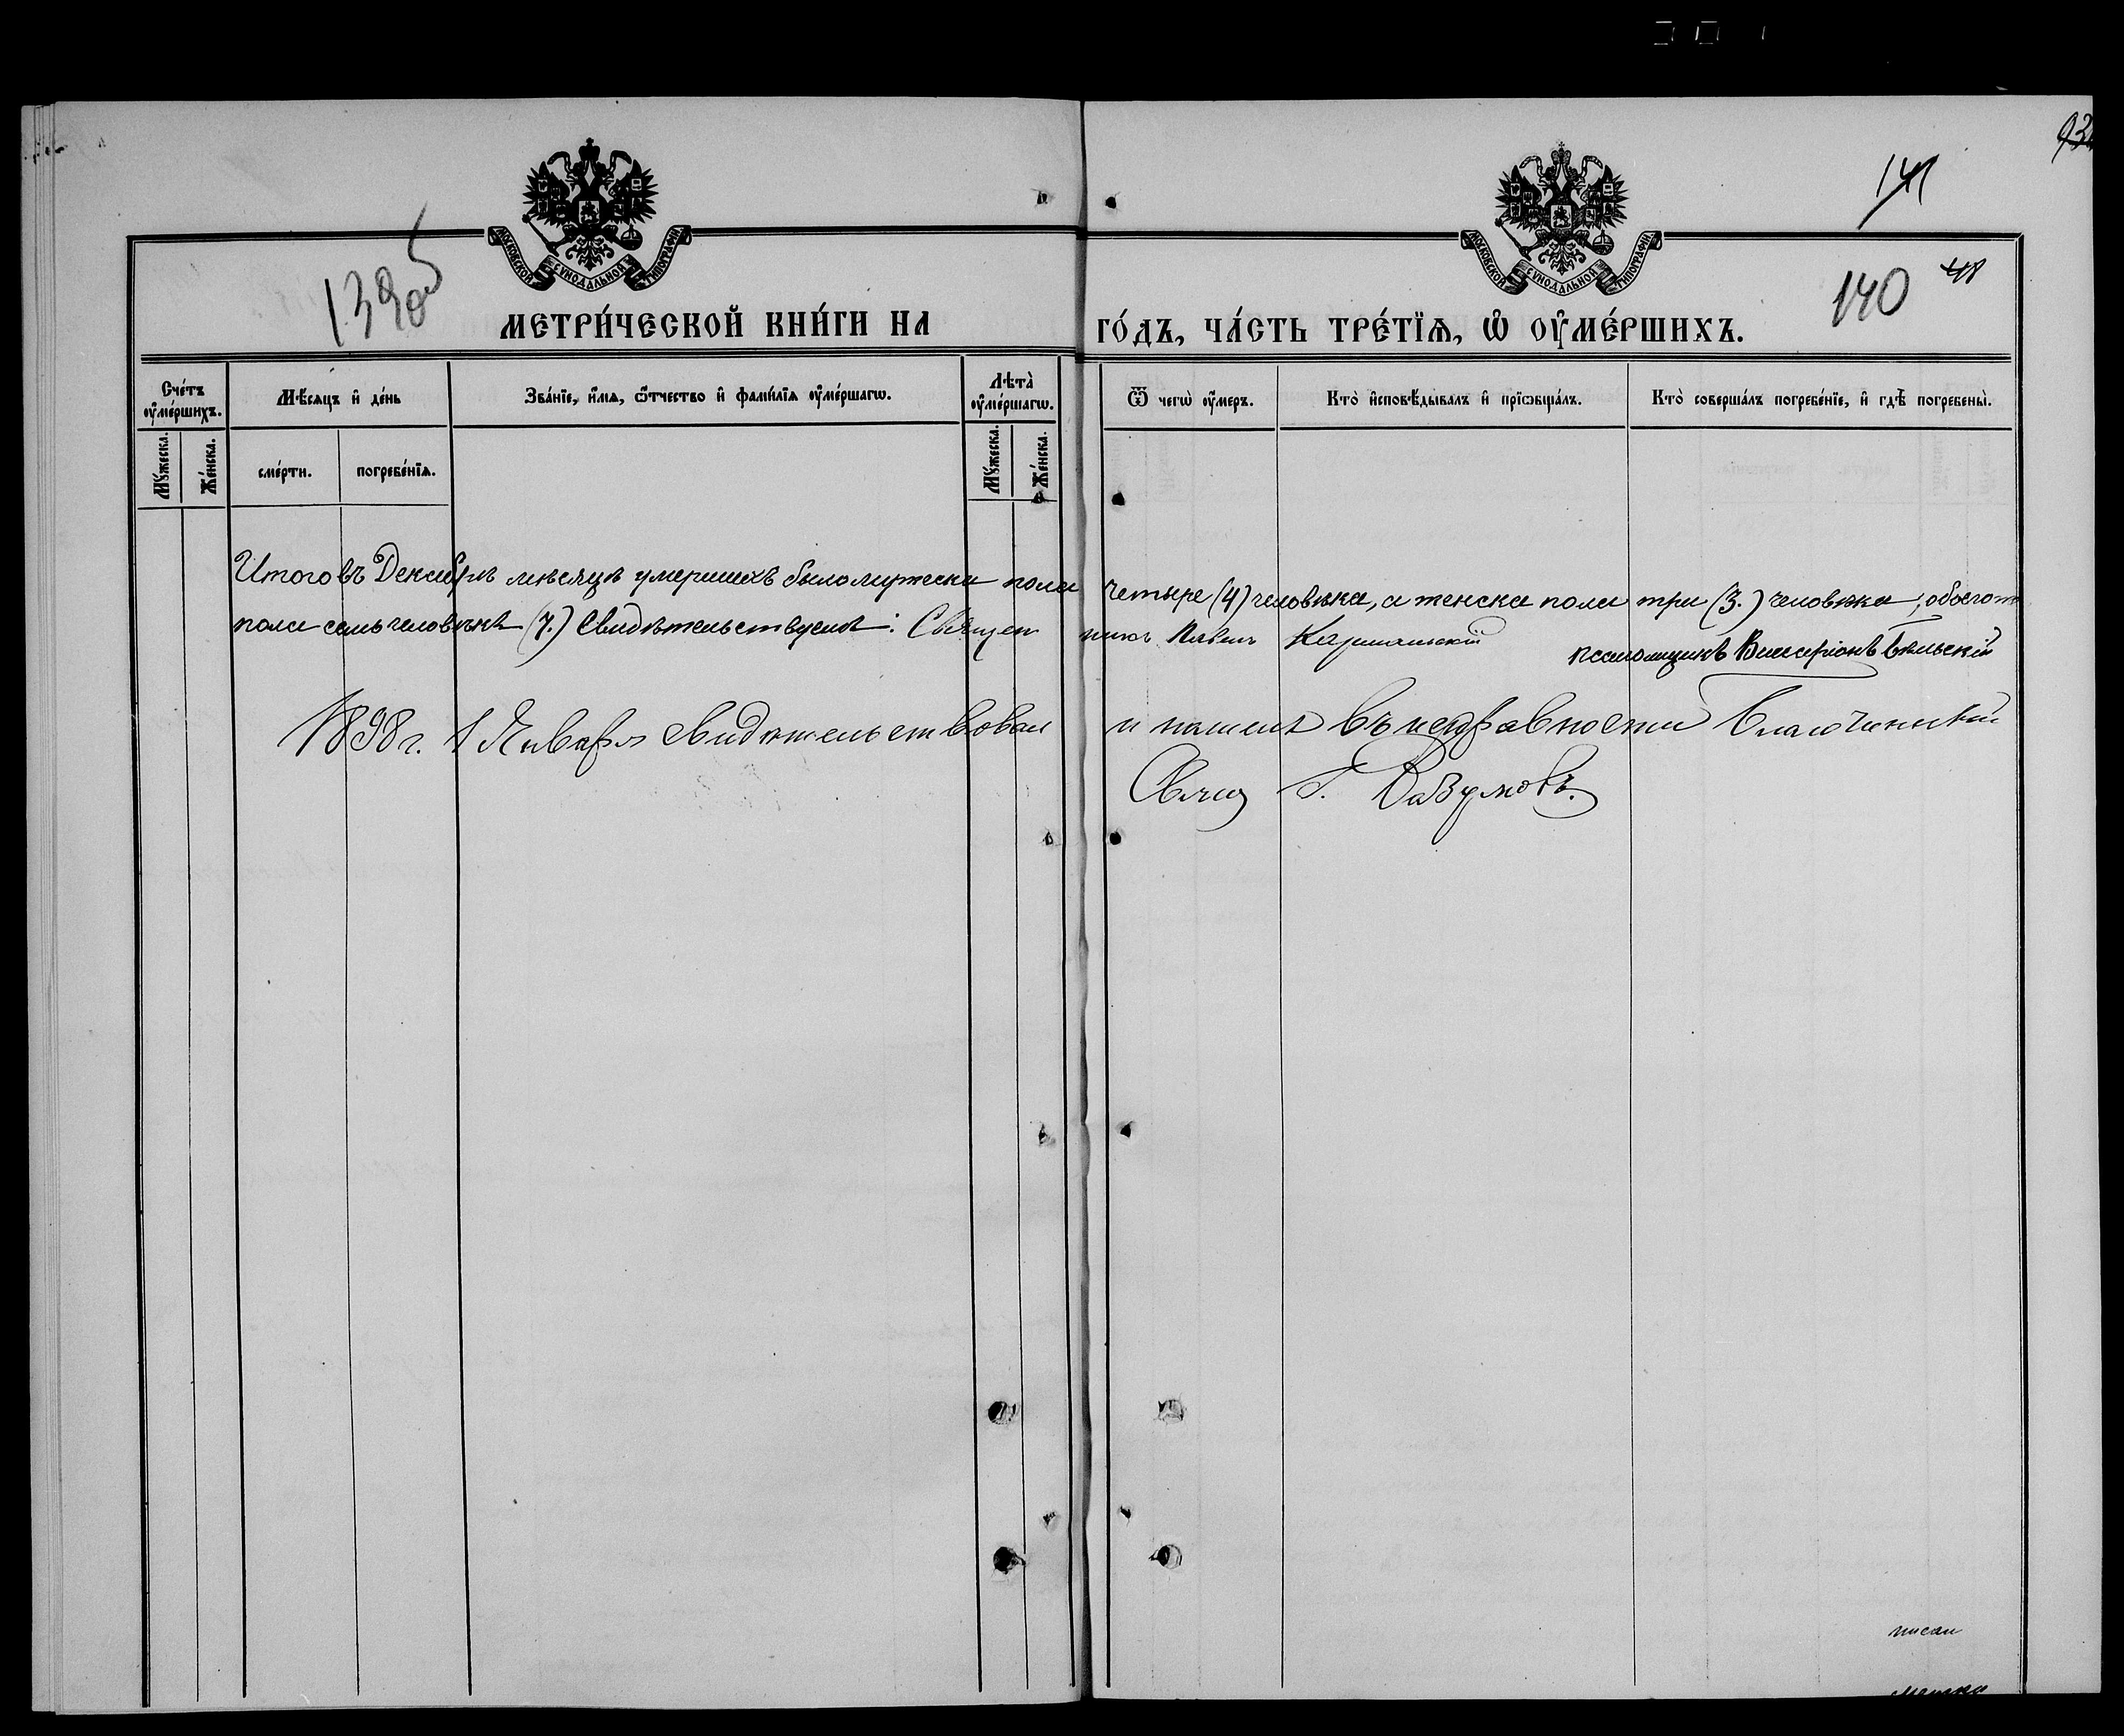 93
141
1395
140
МОСКОВСКОЙ СѴНОДАЛЬНОЙ ТИПОГРАФІИ
МОСКОВСКОЙ СѴНОДАЛЬНОЙ ТИПОГРАФІИ
МЕТРИ́ЧЕСКОЙ КНИ́ГИ НА ГО́ДЪ, ЧА́СТЬ ТРЕ́ТЇѦ, Ѡ҆ ОУ҆МЕ́РШИХЪ.
Сче́тъ оу҆ме́ршихъ.
Мѣ́сяцъ и҆ де́нь
Зва́нїе, и҆́мѧ, ѻ҆́тчество и҆ фами́лїѧ оу҆ме́ршагѡ.
Лѣта̀ оу҆ме́ршагѡ.
Ѿ чегѡ̀ оу҆́меръ.
Кто̀ и҆сповѣ́дывалъ и҆ прїѡбща́лъ.
Кто̀ соверша́лъ погребе́нїе, и҆ гдѣ̀ погребены̀.
Мꙋ́жеска.
Же́нска.
сме́рти.
погребе́нїѧ.
Мꙋ́жеска.
Же́нска.
Итого въ Декабрѣ мѣсяцѣ умершихъ было мужеска пола четыре (4) человѣка, а женска пола три (3.) человѣка; обоего
пола семь человѣкъ (7.) Свидѣтельствуемъ: Священникъ Павелъ
Псаломщикъ Виссаріонъ Бѣльскій
1898 г. 1 Января свидѣтельствовал и нашелъ въ исправности Благочинный
Свящ Г. Разумовъ.
писан